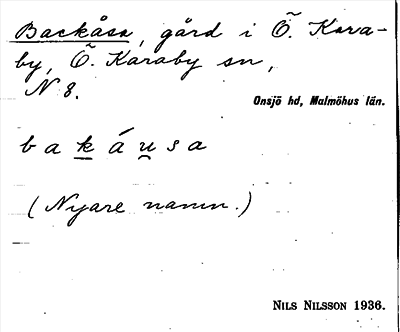 Backåsa, gård i Ö. Kara-
by, Ö. Karaby sn,
N 8.
Onsjö hd, Malmöhus län.
b a k á u s a
(Nyare namn.)
NILS NILSSON 1936.